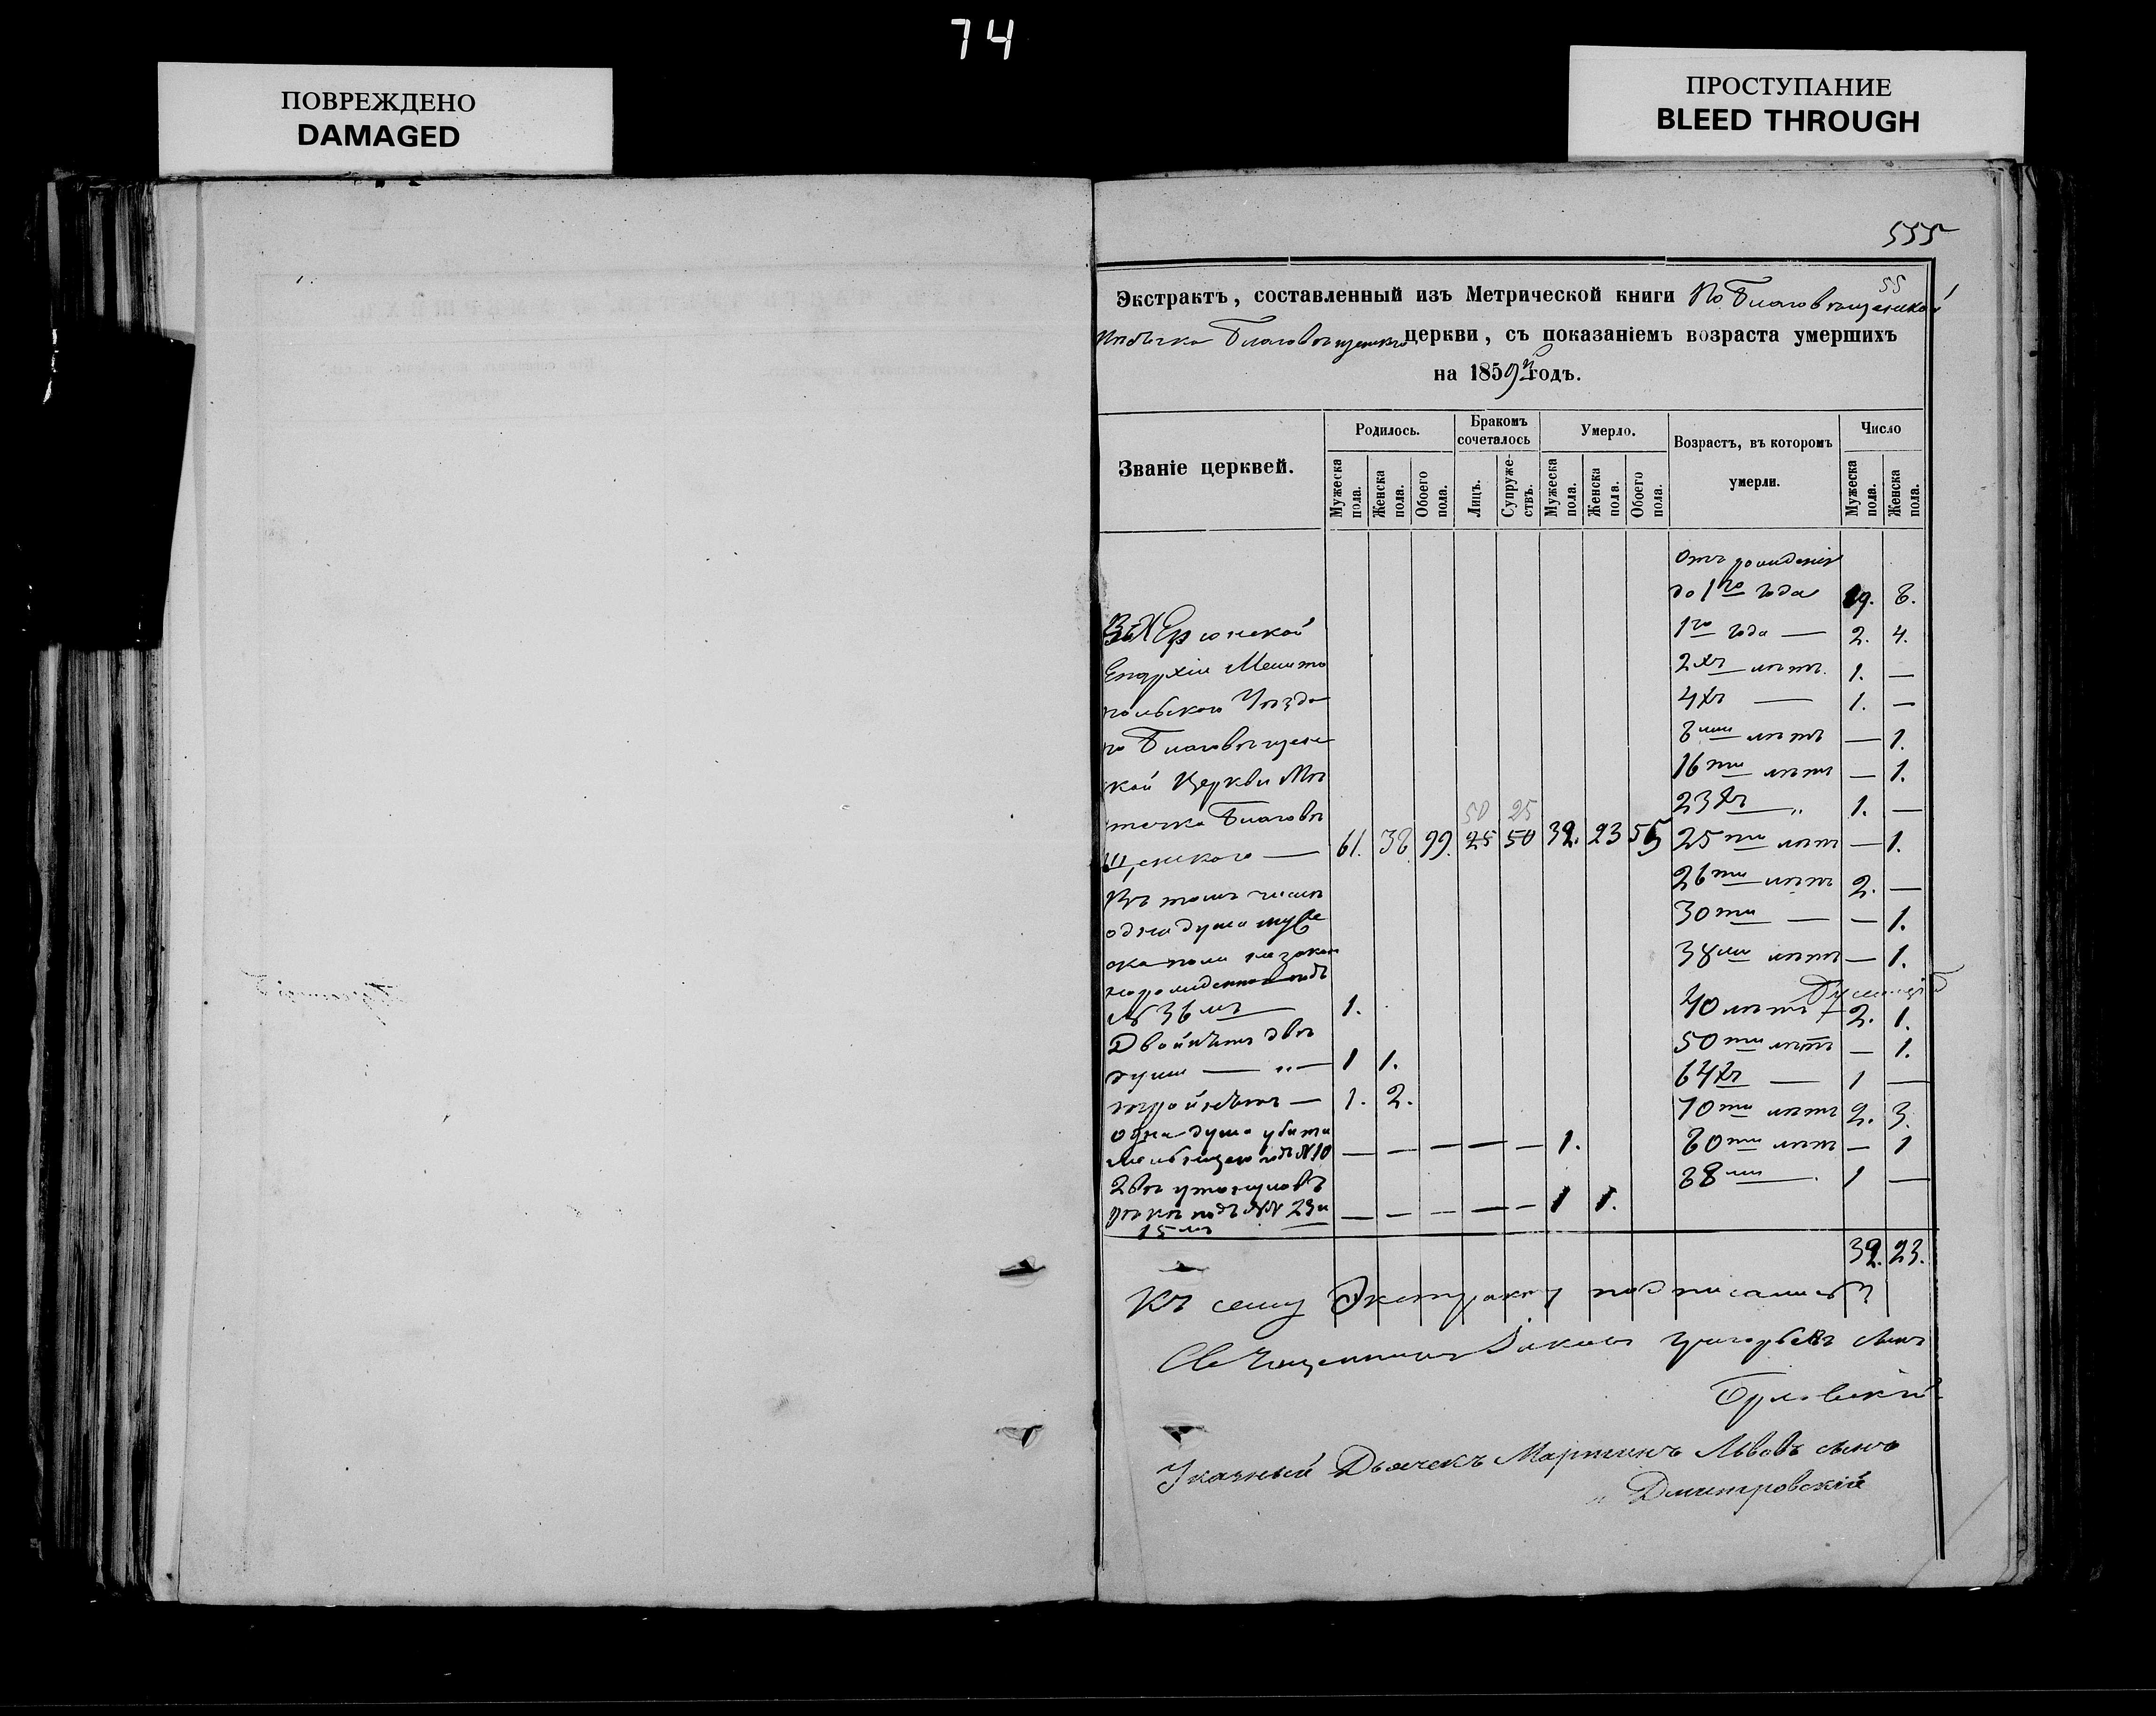 74
ПОВРЕЖДЕНО
DAMAGED
ПРОСТУПАНИЕ
BLEED THROUGH
555
55
Экстрактъ, составленный изъ Метрической книги По Благовѣщенской
мѣстечка Благовѣщенскаго церкви, съ показаніемъ возраста умершихъ
на 1859й годъ.
Званіе церквей.
Родилось.
Бракомъ сочеталось
Умерло.
Возрастъ, въ которомъ умерли.
Число
Мужеска пола.
Женска пола.
Обоего пола.
Лицъ.
Супружествъ.
Мужеска пола.
Женска пола.
Обоего пола.
Мужеска пола.
Женска пола.
Херсонской
Епархіи Мелито
польскаго Уѣзда
по Благовѣщенс
кой Церкви Мѣ
стечка Благовѣ
щенскаго — 61. 38. 99. 25 50 32. 23 55
50 25
Въ томъ числѣ
одна душа муже
ска пола незакон
норожденная подъ
№ 36мъ — 1.
Двойнѣтъ двѣ
души — „ — 1 1.
тройнѣтъ — 1. 2.
одна душа убита
мельницею подъ №10 — — — — — 1.
2вѣ утонуло въ
рѣкѣ подъ №№ 23 и — — — — — 1 1.
15мъ
Отъ рожденія
до 1го года 19. 8.
1го года — 2. 4.
2хъ лѣтъ. 1. —
4хъ — 1. —
8ми лѣтъ — 1.
16ти лѣтъ — 1.
23хъ — „ 1. —
25ти лѣтъ — 1.
26ти лѣтъ 2. —
30ти — — 1.
38ми лѣтъ — 1.
40 лѣтъ 2. 1.
50ти лѣтъ — 1.
64хъ — 1 —
70ти лѣтъ 2. 3.
80ти лѣтъ — 1
88ми — 1 —
32. 23.
Къ сему Экстракту подписались
Священникъ Іаковъ Григорьевъ сынъ
Указный Дьячекъ Мартинъ Львовъ сынъ
Дмитровскій